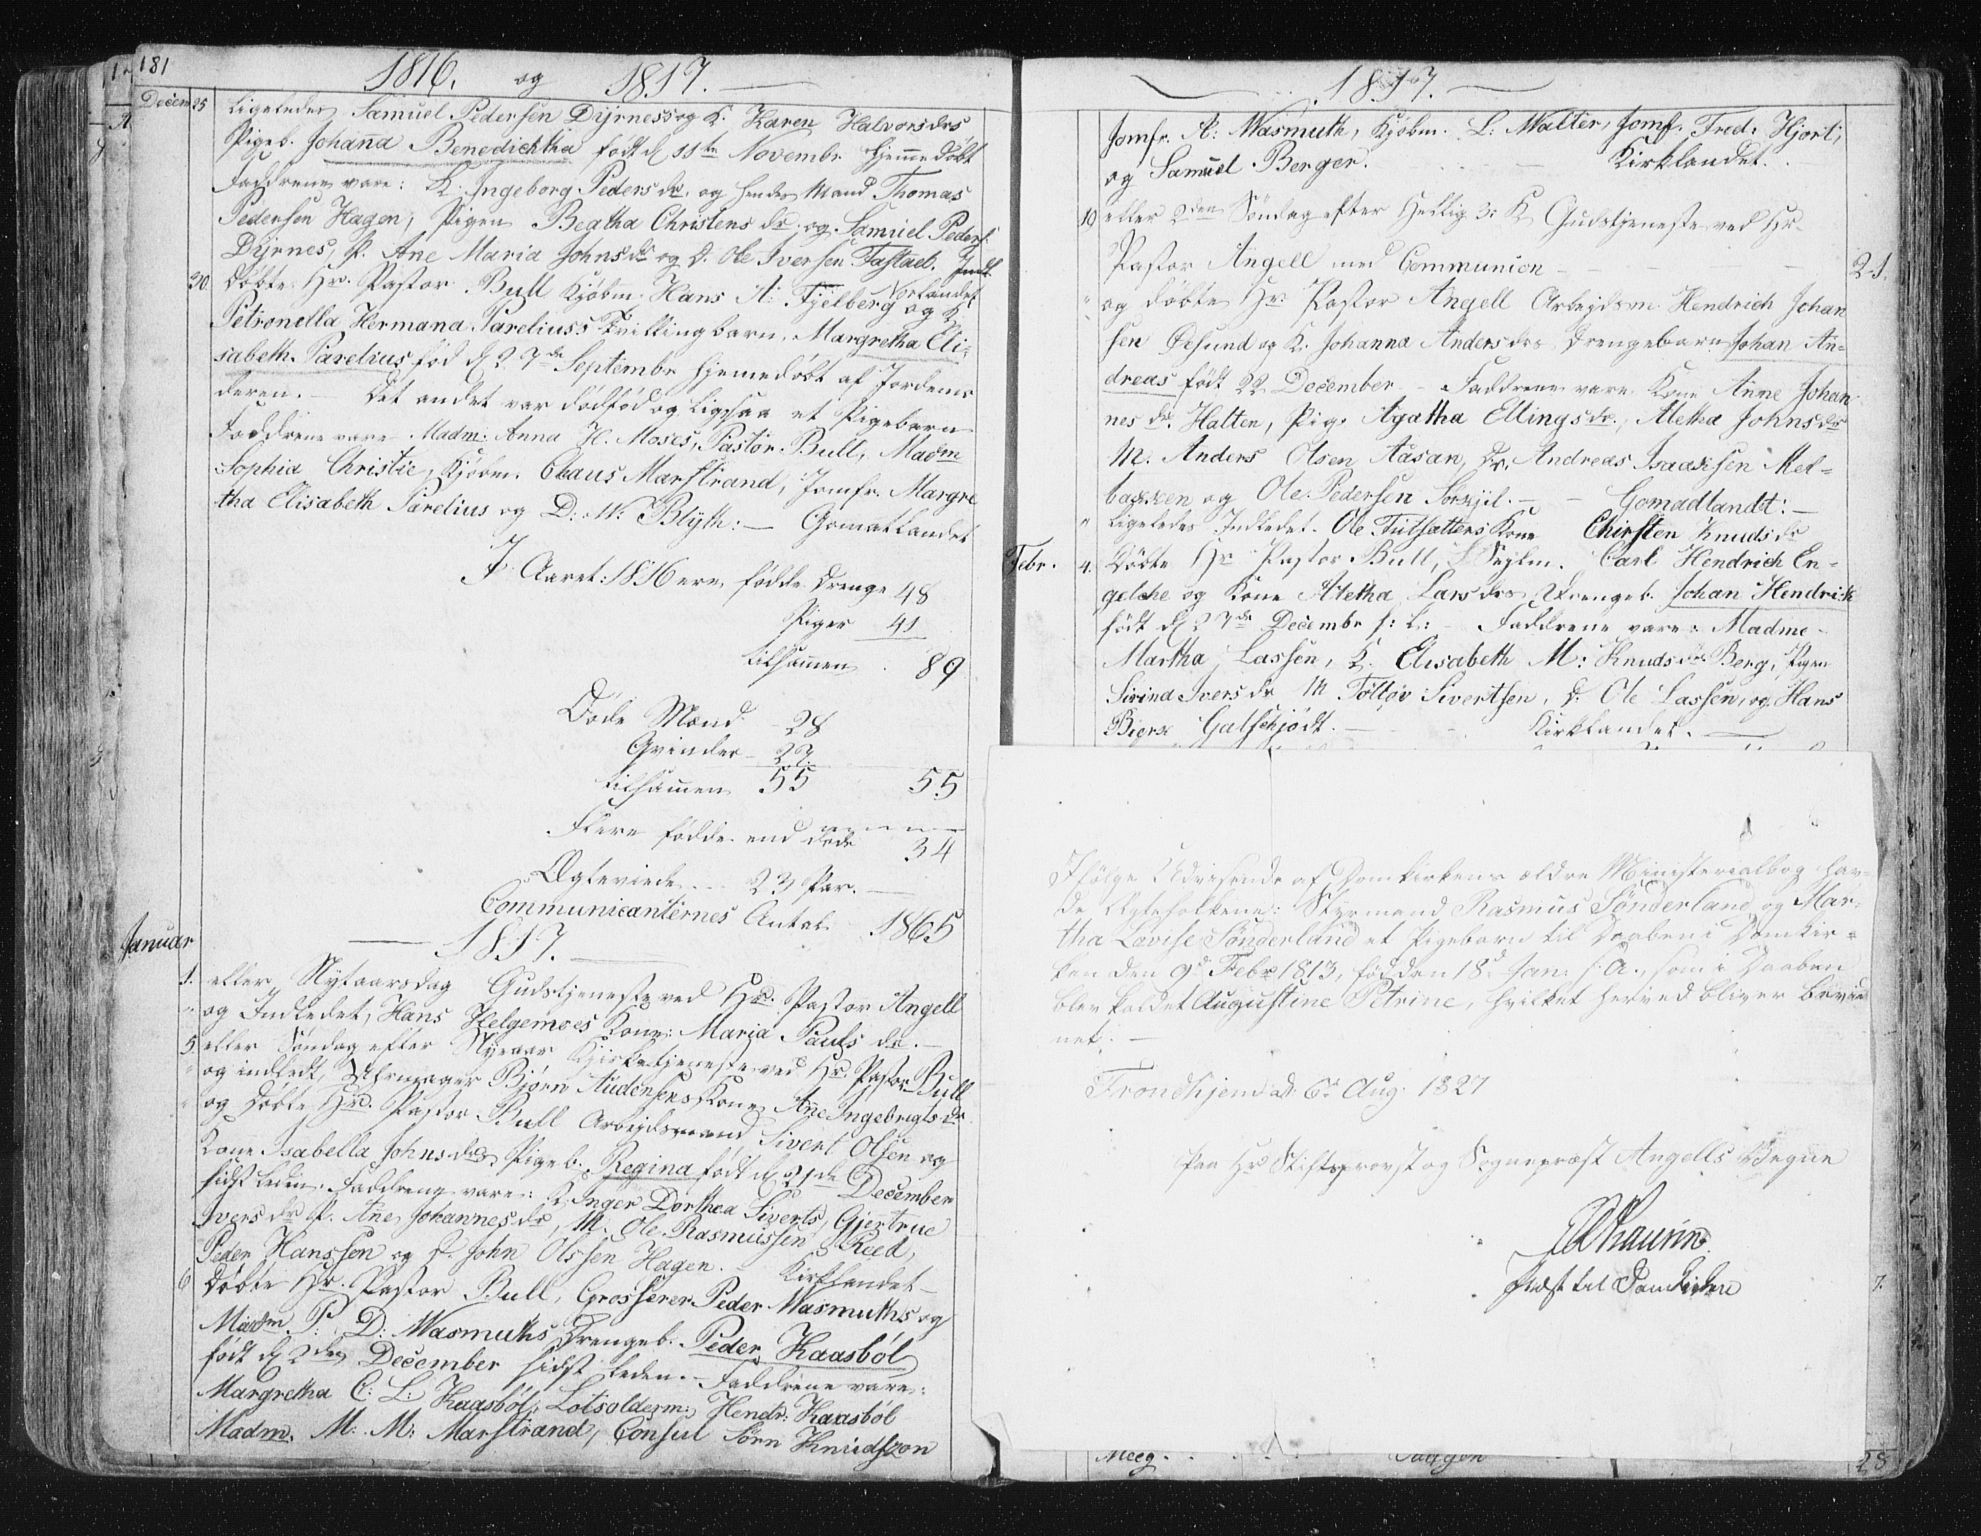 181
1816. og 1817.
Decem 25 Ligeledes Samuel Pedersen Dyrness og K. Karen Halvorsdrs
Pigeb. Johanna Benedichtha født d 11te Novembr hjemmedøbt
Faddrene vare: K. Ingeborg Pedersdr. og hendes Mand Thomas
Pedersen Hagen, Pigen Beatha Christensdr. og Samuel Peders:
Dyrnes, P. Ane Maria Johnsdr og D. Ole Iversen Fastad. Indl
Norlandet
30. Døbte Hr. Pastor Bull Kjøbm. Hans A: Fjelberg og K.
Petronella Hermana Pareliuss Tvillingbarn, Margretha Eli-
sabeth Parelius fød d 27de Septembr hjemedøbt af Jordemo
deren. – Det andet var dødfød og ligesaa et Pigebarn
Faddrene vare Madm: Anna H. Moses, Pastor Bull, Madm
Sophia Christie, Kjøbm. Claus Marstrand, Jomfr. Margre
tha Elisabeth Parelius og D: M: Blyth: – Gomatlandet
I Aaret: 1816 ere fødde Drenge 48
Piger 41
tilsamen 89
Døde Mænd 28
Qvinder 27
tilsammen 55 55
Flere fødde end døde 34
Ægteviede 23 Par. –
Communicanternes Antal 1865
1817.
Januar
1. eller Nytaarsdag Gudstjeneste ved Hr. Pastor Angell
" og Indledet, Hans Helgemoes Kone: Maria Pauls dr. –
5 eller Søndag efter Nyeaar Kjirketjeneste ved Hr. Pastor Bull
" og indledt, Uhrmager Bjørn Audensens Kone Ane Ingebrigtsdr
" og Døbte Hr. Pastor Bull Arbeidsmand Sivert Olsen og
Kone Isabella Johnsdrs Pigeb. Regina født d 21de December
sidstleden. Faddrene vare: K. Inger Dorthea Siverts, Gjertrue
Iversdr P. Ane Johannesdr, M. Ole Rasmussen Reed,
Peder Hanssen og D. John Olssen Hagen. Kirklandet –
6 Døbte Hr. Pastor Bull, Grosserer Peder Wasmuths og
Madm P: D: Wasmuths Drengeb. Peder Kaasbøl
født d 2den December sidst leden. – Faddrene vare:
Margretha C: L: Kaasbøl, Lotsolderm: Hendr: Kaasbøl
Madm. M: M: Marstrand, Consul Sørn Knudszon
1817.
Jomfr. A: Wasmuth, Kjøbm. L: Walter, Jomf. Fred: Hjort,
og Samuel Berger. Kirklandet.
19 eller 2den Søndag efter Hellig 3: K Gudstjeneste ved Hr.
Pastor Angell med Communion – 21.
" og døbte Hr. Pastor Angell Arbejdsm Hendrich Johan
sen Øesund og K. Johanna Andersdrs Drengebarn Johan An-
dreas født 22 December – Faddrene vare Kone Anne Johan
nesdr. Halten, Pig. Agatha Ellingsdr., Aletha Johnsdr
M. Anders Olsen Aasan, Dr. Andreas Isaacksen Mel-
backen og Ole Pedersen Sorkjil. – – Gomadlandt: –
" Ligeledes Indledet. Ole Tutsatters Kone Chirsten Knudsdr
Febr. 4. Døbte Hr Pastor Bull, Sejlm. Carl Hendrich En-
gelche og Kone Aletha Larsdrs Drengeb. Johan Hendrich
født d 27de Decembr s: l: – Faddrene vare: Madme
Martha Lassen, K. Elisabeth M: Knudsdr Berg, Pigen
Sirina Iversdr M Tølløv Sivertsen, D. Ole Lassen, og Hans
Bierse Galschjødt. – Kirklandet. –
Ifølge Udvisende af Domkirkens ældre Ministerialbog hav-
de Ægtefolkene: Styrmand Rasmus Sønderland og Mar-
tha Lovise Sønderland et Pigebarn til Daaben i Domkir-
ken den 9d Febr 1813, fød den 18d Jan: s: A., som i Daaben
blev kaldet Augustine Petrine, hvilket herved bliver bevid
net. –
Trondhjem d. 6t Aug 1827
paa Hr Stiftsprovst og Sognepræst Angells Vegne
Thaurin
Præst til Domkirken
7.
Meeg. 28